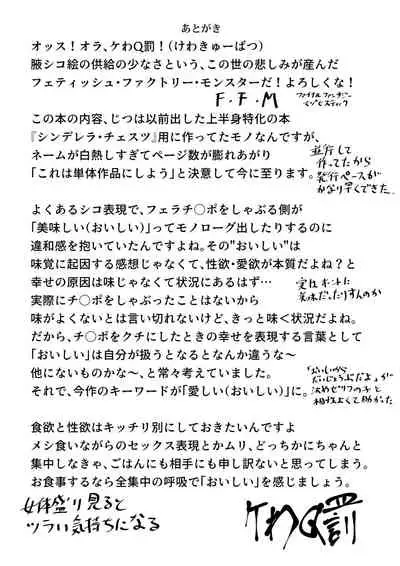 あとがき
オッス！オラ、ケわQ罰！（けわきゅーばつ）
腋シコ絵の供給の少なさという、この世の悲しみが産んだ
フェティッシュ・ファクトリー・モンスターだ！よろしくな！
F・F・M
この本の内容、じつは以前出した上半身特化の本
『シンデレラ・チェスツ』用に作ってたモノなんですが、
ネームが白熱しすぎてページ数が膨れあがり
「これは単体作品にしよう」と決意して今に至ります。
並行して
作ってたから
発行ペースが
かなり早くできた。
よくあるシコ表現で、フェラチ〇ポをしゃぶる側が
「美味しい（おいしい）」ってモノローグ出したりするのに
違和感を抱いていたんですよね。その"おいしい"は
味覚に起因する感想じゃなくて、性欲・愛欲が本質だよね？と
幸せの原因は味じゃなくて状況にあるはず…
実際にチ〇ポをしゃぶったことはないから
味がよくないとは言い切れないけど、きっと味＜状況だよね。
だから、チ〇ポをクチにしたときの幸せを表現する言葉として
「おいしい」は自分が扱うとなるとなんか違うな～
他にないものかな～、と常々考えていました。
それで、今作のキーワードが「愛しい（おいしい）」に。
実はホントに
美味だったりすんのか
「おいしいから
だいじょうぶだよ」が
決めゼリフの子と
相性よくて助かった
食欲と性欲はキッチリ別にしておきたいんですよ
メシ食いながらのセックス表現とかムリ、どっちかにちゃんと
集中しなきゃ、ごはんにも相手にも申し訳ないと思ってしまう。
お食事するなら全集中の呼吸で「おいしい」を感じましょう。
女体盛り見ると
ツラい気持ちになる
ケわQ罰